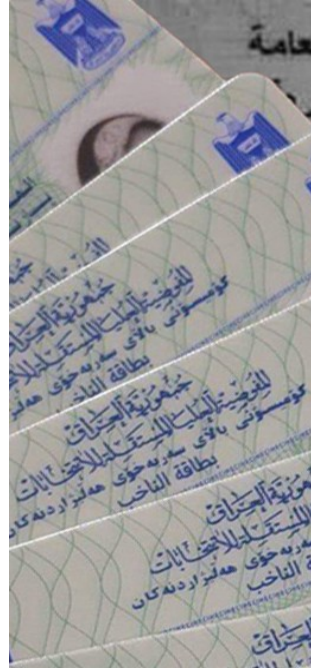 عامة
جمهورية العراق
المفوضية العليا المستقلة للانتخابات
كۆمسیۆنی بالای سەربەخۆی هەڵبژاردنەکان
بطاقة الناخب
جمهورية العراق
المفوضية العليا المستقلة للانتخابات
كۆمسیۆنی بالای سەربەخۆی هەڵبژاردنەکان
بطاقة الناخب
جمهورية العراق
المستقلة للانتخابات
سەربەخۆی هەڵبژاردنەکان
الناخب
العراق